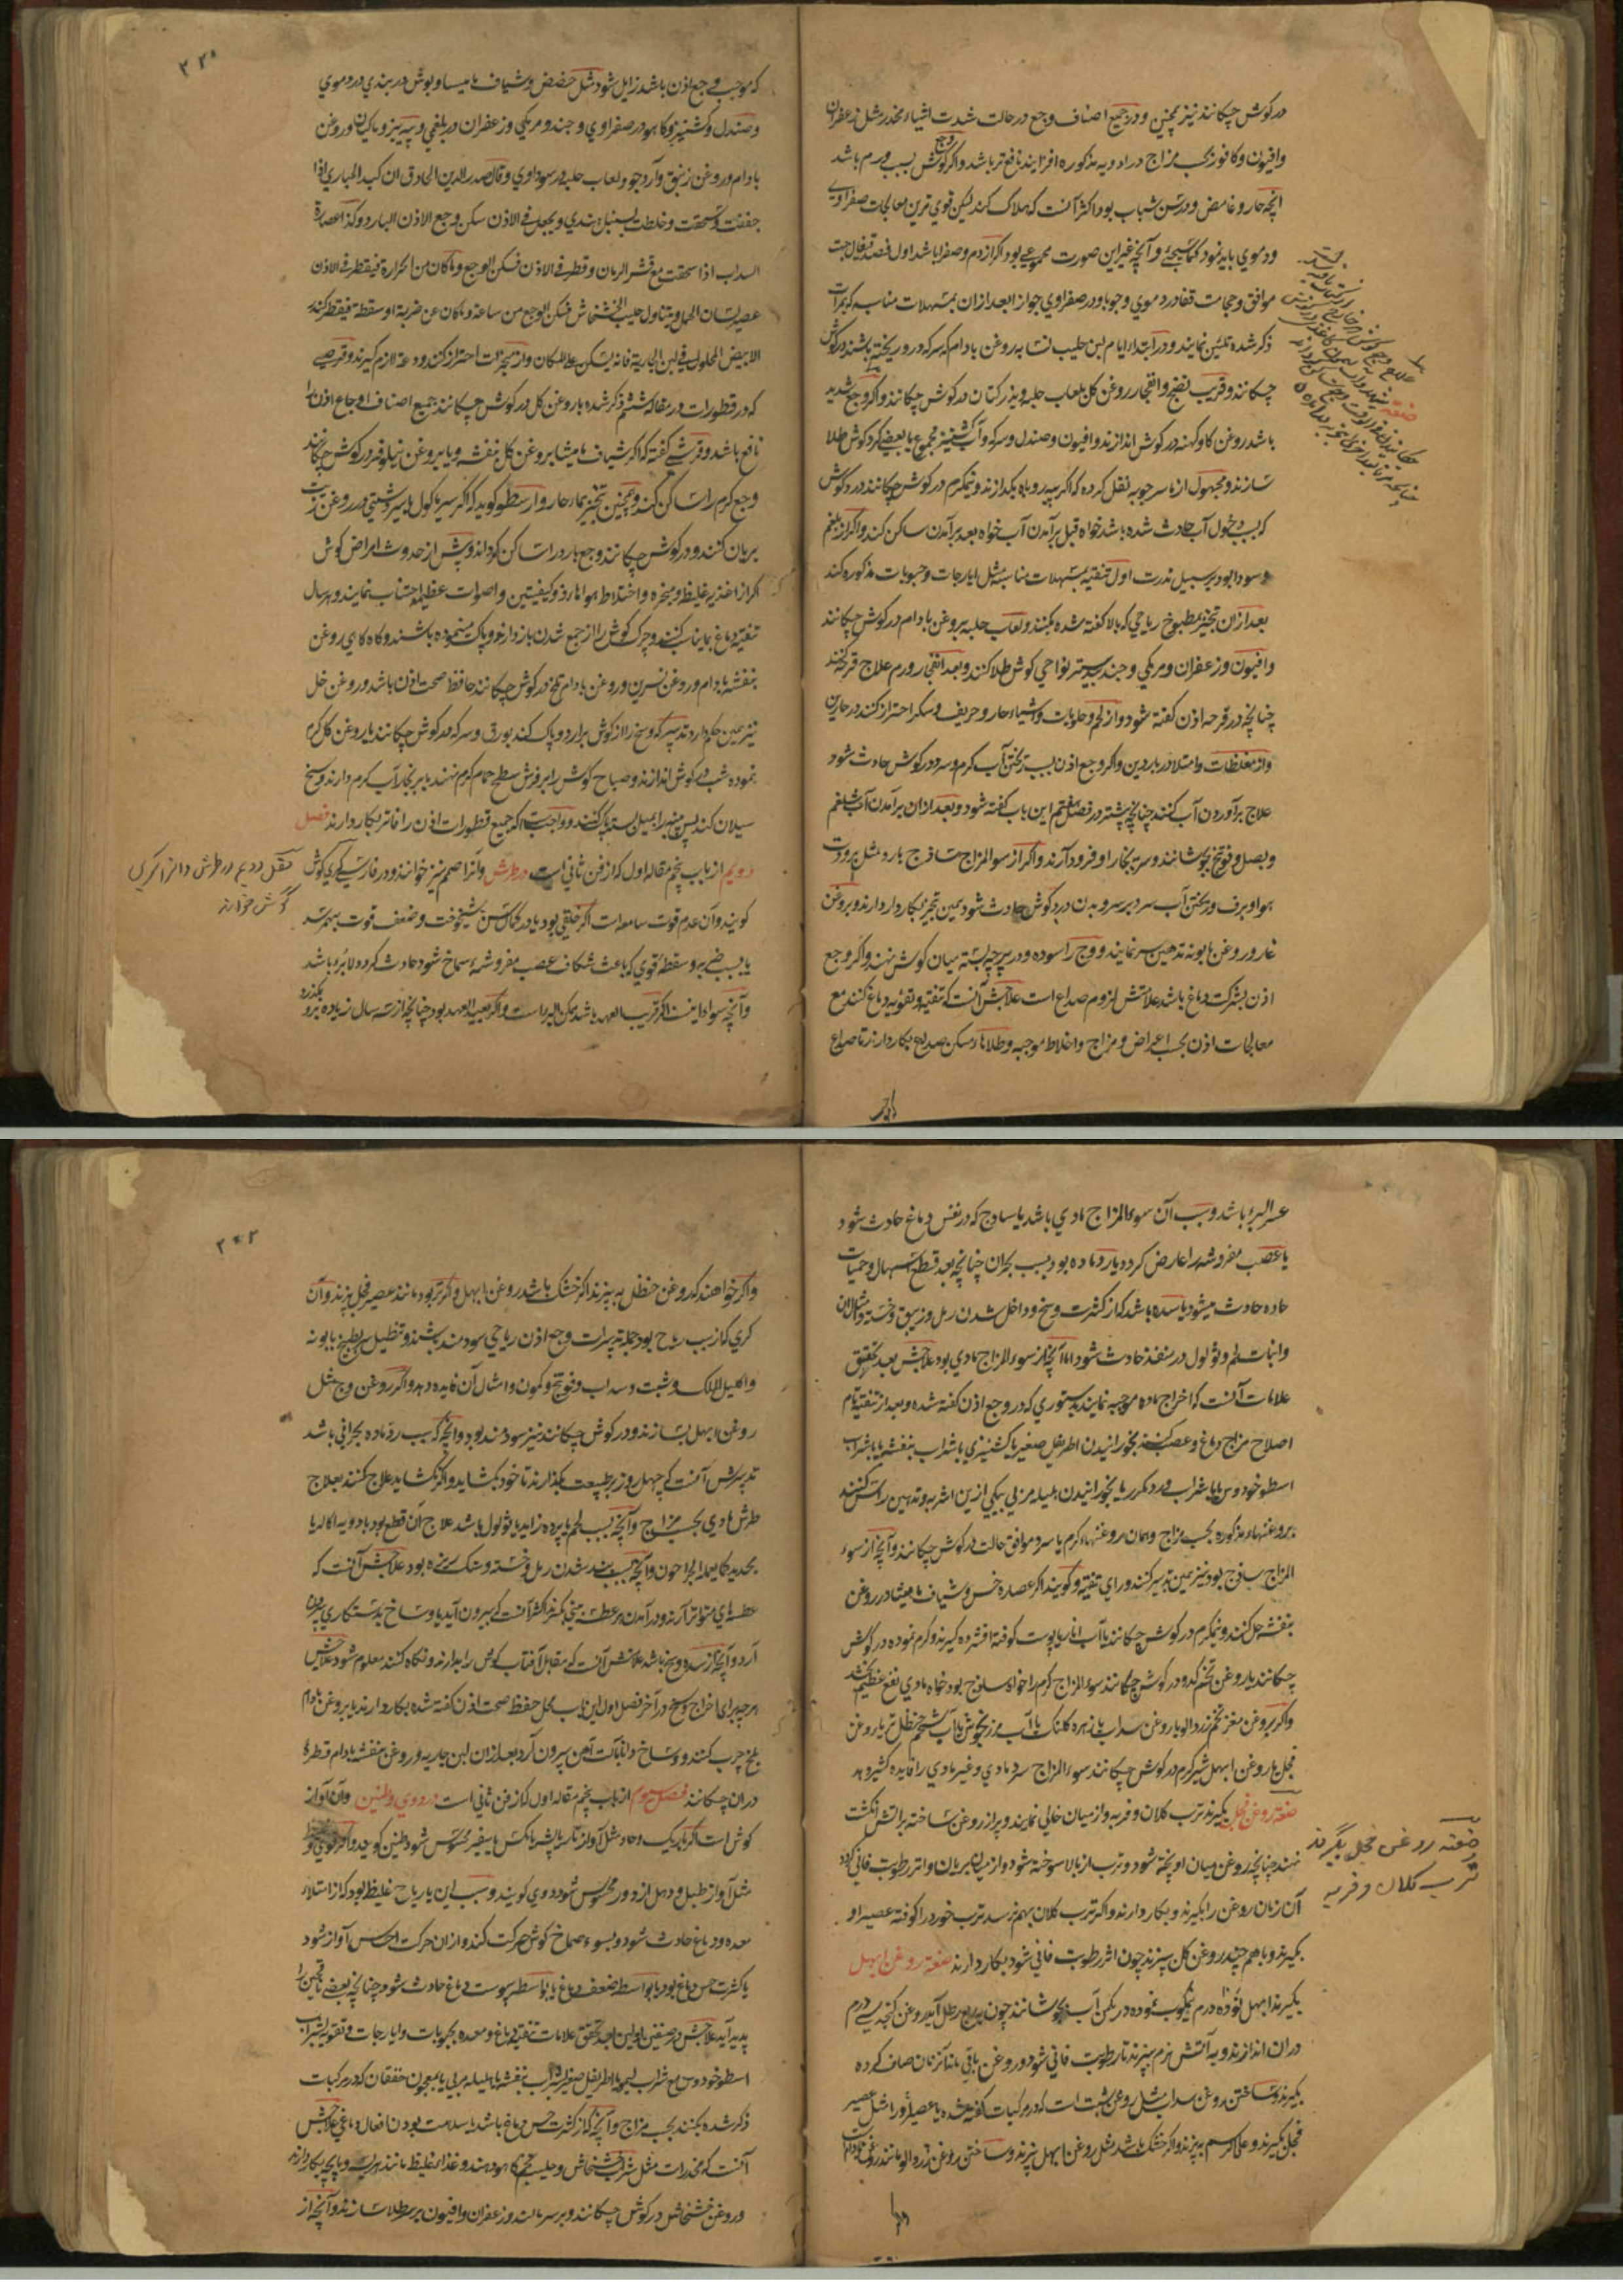 در گوش چکانند نیز همچنین و در جمیع اصناف وجع در حالت شدت اشیاء مخدر مثل زعفران
وافیون وکافور بحسب مزاج در ادویه مذکوره افزایند نافع تر باشد واکر وجع گوش بسبب ورم باشد
آنچه حار و غامض و در سن شباب بود اکثر آنست که هلاک کند لیکن قوی ترین معالجات صفراوی
ودموی باید نمود کما سیجئ وآنچه غیر این صورت بود اکر از دم وصفرا باشد اول فصد قیفال جهت
موافق وحجامت قفا در دموی وجوبا ودر صفراوی جوازا بعد ازان بمسهلات مناسبه که بمرات
ذکر شده تلئین نمایند ودر ابتداء ایام لبن حلیب نسا به روغن بادام که سرکه در و ریخته باشند در کوش
چکانند وقریب نضج وانفجار روغن کل بلعاب حلبه وبذر کتان در کوش چکانند واکر وجع شدید
باشد روغن کاو کهنه در کوش اندازند وافیون وصندل وسرکه وآب کشنیز مجموع یا بعضی کرد کوش طلا
سازند ومجهول از ناسر جویه نقل کرده که اکر پیه روباه بکدازند ونیمکرم در کوش چکانند درد کوش
که بسبب دخول آب حادث شده باشد خواه قبل برآمدن آب خواه بعد برآمدن ساکن کند واکر از بلغم
وسودا بود بر سبیل ندرت اول تنقیه بمسهلات مناسبه مثل ایارجات وحبوبات مذکوره کنند
بعد ازان تبخیر بمطبوخ ریاحی که بالا کفته شده بکنند ولعاب حلبه بروغن بادام در کوش چکانند
وافیون وزعفران ومرمکی وجند بیدستر نواحی کوش طلا کنند وبعد انفجار ورم علاج قرحه کنند
چنانچه در قرحه اذن کفته شود واز لحم وحلویات واشیاء حار وحریف ومسکر احتراز کنند در حارین
واز مغلظات وامتلا در باردین واکر وجع اذن بسبب ریختن آب کرم وسرد در کوش حادث شود
علاج برآوردن آب کنند چنانچه پیشتر در فصل هفتم این باب کفته شود وبعد ازان برآمدن آب شلغم
وبصل وفوتنج بجوشانند وسر به بخار او فرود آرند واکر از سوء المزاج ساذج بارد مثل برودت
هوا وبرف وریختن آب سرد بر سر وبدن درد کوش حادث شود همین تبخیر بکار دارند وبروغن
غار وروغن بابونه تدهین سر نمایند ووج را سوده ودر پرچه بسته میان کوش نهند واکر وجع
اذن بشرکت دماغ باشد علامتش لزوم صداع است علاجش آنست که تنقیه وتقویه دماغ کنند مع
معالجات اذن بحسب اعراض ومزاج واخلاط موجبه وطلاها مسکن صداع بکار دارند تا صداع
که موجب وجع اذن باشد زایل شود مثل حضض وشیاف مامیسا وبوش دربندی در دموی
وصندل وکشنیز وکاهو در صفراوی وجند ومرمکی وزعفران در بلغمی وپیه بز وماکیان وروغن
بادام وروغن زنبق وآرد جو ولعاب حلبه در سوداوی وقال صدر الدین الحاذق ان کبد الحباری اذا
جففت وسحقت وخلطت بسنبل هندی ویجعل فی الاذن سکن وجع الاذن البارد وکذا عصارة
السداب اذا سحقت مع قشر الرمان وقطر فی الاذن فسکن الوجع وماکان من الحرارة فیقطر فی الاذن
عصیر لسان الحمل ویتناول حلیب الخشخاش فسکن الوجع من ساعته وماکان عن ضربة او سقطة فیقطر
الابیض المحلول فی لبن الجاریة فانه یسکن
که در قطورات در مفا کششم ذکر شده با روغن کل در کوش چکانند جمیع اصناف اوجاع اذن را
نافع باشد وقرشی کفته که اکر شیاف مامیشا بروغن کل بنفشه ویا بروغن نیلوفر در کوش چکانند
وجع کرم را ساکن کند وهمچنین تبخیر بماء حار وارسطو کوید که اکر سیر ماکول یا سیر دشتی در روغن زیت
بریان کنند ودر کوش چکانند وجع بارد را ساکن کرداند وپیش از حدوث امراض کوش
اکر از اغذیه غلیظ ومبخره واختلاط هوا ماردو کیفیتین واصوات عظیمه اجتناب نمایند وهر سال
تنقیه دماغ کنند وچرک کوش را از جمع شدن باز دارند وپاک مینموده باشند وکاه کاهی روغن
بنفشه بادام وروغن نسرین وروغن بادام تلخ در کوش چکانند حافظ صحت اذن باشد وروغن خل
نیز همین حکم دارد تدبیر که وسخ را از کوش برارد وپاک کند بورق وسرکه در کوش چکانند یا روغن کل کرم
نموده شب در کوش اندازند وصباح کوش را بر فرش سطح حمام کرم نهند یا بر بخار آب کرم دارند وسخ
سیلان کند پس پنبه را بمیل بسته پاک کنند وواجبست که جمیع قطورات اذن را فاتر بکار دارند فصل
دویم از باب پنجم مقاله اول که از فن ثانی است در طرش وآنرا صمم نیز خوانند ودر فارسی کری کوش
کویند وآن عدم قوت سامعه است اکر خلقی بود یا در کمال سن شیخوخت وضعف قوت بهمرسد
یا بسبب ضربه وسقطه قوی که باعث شکاف عصب مفروشه سماخ شود حادث کردد لابرو باشد
وآنچه سوا اینست اکر قریب العهد باشد ممکن البرء است واکر بعید العهد بود چنانچه از سه سال زیاده برو بکذرد
فصل دویم در طرش و آنرا کری
گوش خوانند
عسر البرء باشد وسبب آن سوء المزاج مادی باشد یا ساذج که در نفس دماغ حادث شود
یا عصب مفروشه را عارض کردد یا رو ماده بود بسبب بحران چنانچه بعد قطع اسهال وحمیات
حاده حادث میشود یا سده باشد که از کثرت وسخ وداخل شدن رمل وزیبق وخسته وامثال ان
وانبات لحم وثولول در منفذ حادث شود اما آنچه از سوء المزاج مادی بود علاجش بعد تحقیق
علامات آنست که اخراج ماده موجبه نمایند بدستوری که در وجع اذن کفته شده وبعد از تنقیه تام
اصلاح مزاج دماغ وعصب کنند بخورانیدن اطریفل صغیر یا کشنیزی با شراب بنفشه یا با شراب
اسطوخودوس یا با شراب ورد مکرر یا بخورانیدن هلیله مربی بیکی ازین اشربه وتدهین راس کنند
بروغنهاء مذکوره بحسب مزاج وهمان روغنهاء کرم یا سرد موافق حالت در کوش چکانند وآنچه از سوء
المزاج ساذج بود نیز همین تدبیر کنند ورای تنقیه وکویند اکر عصاره خس وشیاف مامیشا در روغن
بنفشه حل کنند ونیمکرم در کوش چکانند یا آب انار با پوست کوفته افشرده کیرند وکرم نموده در کوش
چکانند یا روغن تخم کدو در کوش چکانند سوء المزاج کرم را خواه ساذج بود خواه مادی نفع عظیم بخشد
واکر بروغن مغز تخم زردالو یا روغن سداب یا زهره کلنک با آب مرزنجوش یا آب شحم حنظل تر یا روغن
فجل یا روغن ابهل شیرکرم در کوش چکانند سوء المزاج سرد مادی وغیر مادی را فایده کثیر دهد
صفته روغن فجل بکیرند ترب کلان وفربه واز میان خالی نمایند وپر از روغن ساخته بر آتش انکشت
نهند چنانچه روغن میان او پخته شود وترب از بالا سوخته شود واز میان بریان واثر رطوبت فانی کردد
آن زمان روغن را بکیرند وبکار دارند واکر ترب کلان بهم نرسد ترب خورد را کوفته عصیر او
بکیرند وبا هم چند روغن کل بپزند چون اثر رطوبت فانی شود بکار دارند صفته روغن ابهل
بکیرند ابهل نو ده درم نیمکوب نموده در یکمن آب بجوشانند چون بربع رطل آید روغن کنجد سی درم
دران اندازند وبه آتش نرم بپزند تا رطوبت فانی شود وروغن باقی ماند آنزمان صاف کرده
بکیرند وساختن روغن سداب مثل روغن شبت است که در مرکبات کفته شده یا عصیر او را مثل عصیر
فجل بکیرند وعلی الرسم بپزند واکر خشک باشد مثل روغن ابهل بپزند وساختن روغن زردالو مانند روغن بادام
صفته روغن فجل بگیرند
ترب کلان و فربه
واکر خواهند که روغن حنظل بپزند اکر خشک باشد روغن ابهل واکر تر بود مانند عصیر فجل بپزند وآن
کری که از سبب ریاح بود جمله تدبیرات وجع اذن ریاحی سودمند باشند وتنطیل سر بطبیخ بابونه
واکلیل الملک وشبت وسداب وفوتنج وکمون وامثال آن فایده دهد واکر روغن وج مثل
روغن ابهل بسازند ودر کوش چکانند نیز سودمند بود وآنچه که سبب رد ماده بحرانی باشد
تدبیرش آنست که چهل روز بر طبیعت بکذارند تا خود بکشاید واکر نکشاید علاج کنند بعلاج
طرش مادی بحسب مزاج وآنچه بسبب لحم یا پرده زاید یا ثولول باشد علاج آن قطع بود بادویه اکاله یا
بحدید کما یعمله الجراحون وآنچه بسبب بند شدن رمل وخسته وسنک ریزه بود علاجش آنست که
عطسهای متواتر آرند ودر آمدن هر عطسه بینی بکیرند اکثر آنست که بیرون آید یا وساخ بدستکاری بیرون
آرد وآنچه از سده وسخ باشد علامتش آنست که مقابل آفتاب کوش را بدارند ونکاه کنند معلوم شود علاجش
هر چه برای اخراج وسخ در آخر فصل اول این باب محل حفظ صحت اذن کفته شده بکار دارند یا بروغن بادام
تلخ چرب کنند ووساخ دانا بآلت آهن بیرون آرد بعد ازان لبن جاریه وروغن بنفشه بادام قطره
دران چکانند فصل سیوم از باب پنجم مقاله اول که از فن ثانی است در دوی وطنین وآن آواز
کوش است اکر باریک وحاد مثل آواز تار یا پشه یا مکس یا صفیر محسوس شود طنین کویند واکر قوی بود
مثل آواز طبل ودهل از دور محسوس شود دوی کویند وسبب این یا ریاح غلیظ بود که از امتلاء
معده ودماغ حادث شود وبسوء صماخ کوش حرکت کند وازان حرکت احساس آواز شود
یا کثرت حس دماغ بود یا بواسطه ضعف دماغ یا بواسطه یبوست دماغ حادث شود چنانچه بعضی ناقهین را
پدید آید علاجش در صنفین اولین بعد تحقق علامات تنقیه دماغ ومعده بحبوبات وایارجات وتقویه بشراب
اسطوخودوس مع شراب لیمو یا اطریفل صغیر بشراب بنفشه یا هلیله مربی یا معجون خفقان که در مرکبات
ذکر شده بکنند بحسب مزاج وآنچه که از کثرت حس دماغ باشد با سلامت بودن افعال دماغی علاجش
آنست که مخدرات مثل شراب خشخاش وحلیب تخم کاهو دهند وغذاء غلیظ مانند هریسه وپاچه بکار دارند
وروغن خشخاش در کوش چکانند وبر سر مالند وزعفران وافیون بر سر طلا سازند وآنچه از